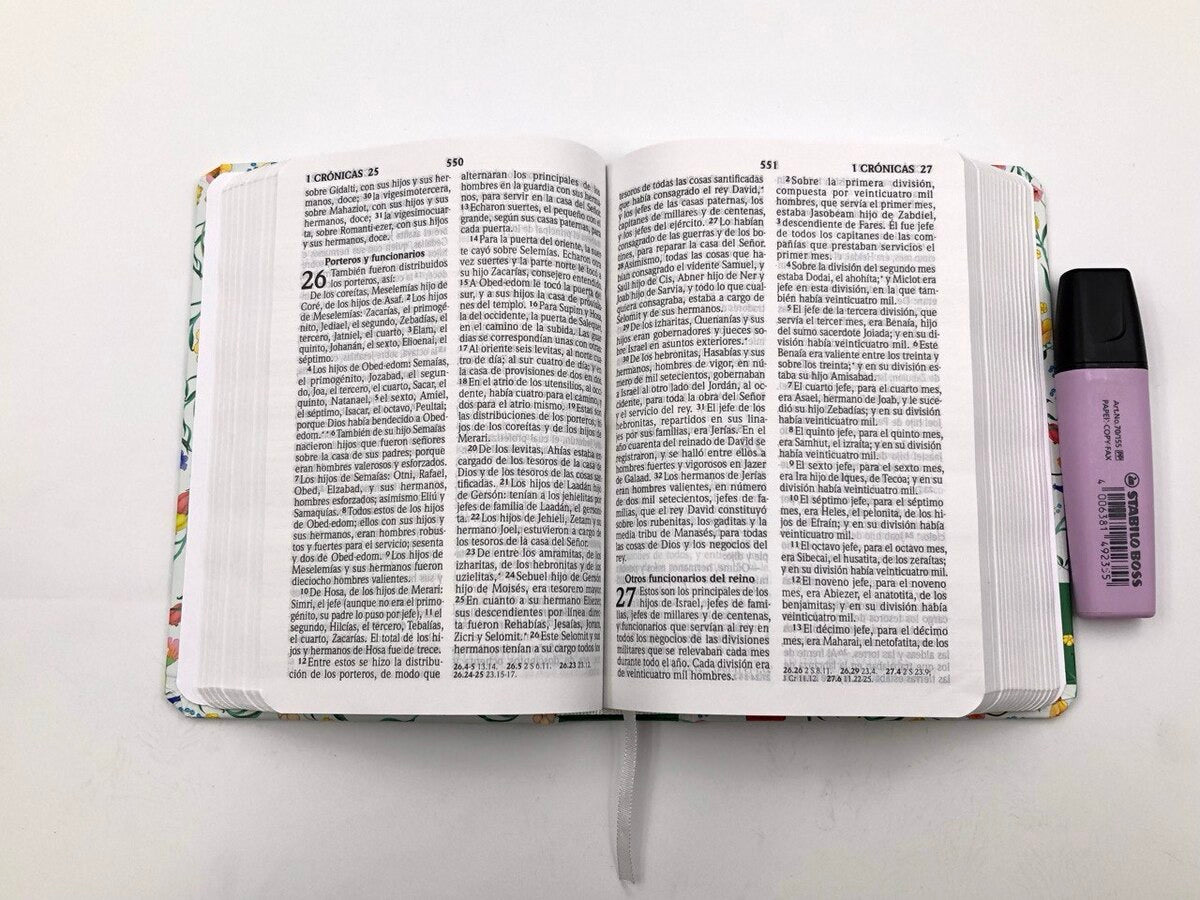 1 CRÓNICAS 25
550
sobre Gidalti, con sus hijos y sus her-
manos, doce; 30 la vigesimotercera,
sobre Mahaziot, con sus hijos y sus
hermanos, doce; 31 la vigesimocuar-
ta, sobre Romanti-ezer, con sus hijos
y sus hermanos, doce.
Porteros y funcionarios
26 También fueron distribuidos
los porteros, así:
De los coreítas, Meselemías hijo de
Coré, de los hijos de Asaf. 2 Los hijos
de Meselemías: Zacarías, el primogé-
nito, Jediael, el segundo, Zebadías, el
tercero, Jatniel, el cuarto, 3 Elam, el
quinto, Johanán, el sexto, Elioenai, el
séptimo.
4 Los hijos de Obed-edom: Semaías,
el primogénito, Jozabad, el segun-
do, Joa, el tercero, el cuarto, Sacar, el
quinto, Natanael, 5 el sexto, Amiel,
el séptimo, Isacar, el octavo, Peultai;
porque Dios había bendecido a Obed-
edom. 6 También de su hijo Semaías
nacieron hijos que fueron señores
sobre la casa de sus padres; porque
eran hombres valerosos y esforzados.
7 Los hijos de Semaías: Otni, Rafael,
Obed, Elzabad, y sus hermanos,
hombres esforzados; asimismo Eliú y
Samaquías. 8 Todos estos de los hijos
de Obed-edom; ellos con sus hijos y
sus hermanos, eran hombres robus-
tos y fuertes para el servicio; sesenta
y dos de Obed-edom. 9 Los hijos de
Meselemías y sus hermanos fueron
dieciocho hombres valientes.
10 De Hosa, de los hijos de Merari:
Simri, el jefe (aunque no era el primo-
génito, su padre lo puso por jefe), 11 el
segundo, Hilcías, el tercero, Tebalías,
el cuarto, Zacarías. El total de los hi-
jos y hermanos de Hosa fue de trece.
12 Entre estos se hizo la distribu-
ción de los porteros, de modo que
alternaran los principales de los
hombres en la guardia con sus herma-
nos, para servir en la casa del Señor.
13 Echaron suertes, el pequeño con el
grande, según sus casas paternas, para
cada puerta.
14 Para la puerta del oriente, la suerte
le cayó sobre Selemías. Echaron
vez suertes y la parte norte le tocó a
su hijo Zacarías, consejero entendido.
15 A Obed-edom le tocó la puerta del
sur, y a sus hijos la casa de provisio-
nes del templo. 16 Para Supim y Hosa
la del occidente, la puerta de Salequet,
en el camino de la subida. Las guar-
dias se correspondían unas con otras.
17 Al oriente seis levitas, al norte cua-
tro de día; al sur cuatro de día; y en
la casa de provisiones de dos en dos.
18 En el atrio de los utensilios, al occi-
dente, había cuatro para el camino, y
dos para el atrio mismo. 19 Estas son
las distribuciones de los porteros, hi-
jos de los coreítas y de los hijos de
Merari.
20 De los levitas, Ahías estaba en-
cargado de los tesoros de la casa de
Dios y de los tesoros de las cosas san-
tificadas. 21 Los hijos de Laadán, hijo
de Gersón: tenían a los jehielitas por
jefes de familia de Laadán, el gerson-
ta. 22 Los hijos de Jehieli, Zetam y su
hermano Joel, estuvieron a cargo de
los tesoros de la casa del Señor.
23 De entre los amramitas, de los
izharitas, de los hebronitas y de los
uzielitas, 24 Sebuel hijo de Gersón
hijo de Moisés, era tesorero mayor.
25 En cuanto a su hermano Eliezer,
sus descendientes por línea direc-
ta fueron Rehabías, Jesaías, Joram,
Zicri y Selomit. 26 Este Selomit y sus
hermanos tenían a su cargo todos los
26.4-5 13.14. 26.5 2 S 6.11. 26.23 23.12.
26.24-25 23.15-17.
551
1 CRÓNICAS 27
tesoros de todas las cosas santificadas
que había consagrado el rey David,
y los jefes de las casas paternas, los
capitanes de millares y de centenas,
y los jefes del ejército. 27 Lo habían
consagrado de las guerras y de los bo-
tines, para reparar la casa del Señor.
28 Asimismo, todas las cosas que ha-
bían consagrado el vidente Samuel, y
Saúl hijo de Cis, Abner hijo de Ner y
Joab hijo de Sarvia, y todo lo que cual-
quiera consagraba, estaba a cargo de
Selomit y de sus hermanos.
29 De los izharitas, Quenanías y sus
hijos eran gobernadores y jueces so-
bre Israel en asuntos exteriores.
30 De los hebronitas, Hasabías y sus
hermanos, hombres de vigor, en nú-
mero de mil setecientos, gobernaban
a Israel al otro lado del Jordán, al oc-
cidente, para toda la obra del Señor
y el servicio del rey. 31 El jefe de los
hebronitas, repartidos en sus lina-
jes por sus familias, era Jerías. En el
año cuarenta del reinado de David se
registraron, y se halló entre ellos a
hombres fuertes y vigorosos en Jazer
de Galaad. 32 Los hermanos de Jerías
eran hombres valientes, en número
de dos mil setecientos, jefes de fa-
milias, que el rey David constituyó
sobre los rubenitas, los gaditas y la
media tribu de Manasés, para todas
las cosas de Dios y los negocios del
rey.
Otros funcionarios del reino
27 Estos son los principales de los
hijos de Israel, jefes de fami-
lias, jefes de millares y de centenas,
y funcionarios que servían al rey en
todos los negocios de las divisiones
militares que se relevaban cada mes
durante todo el año. Cada división era
de veinticuatro mil hombres.
2 Sobre la primera división,
compuesta por veinticuatro mil
hombres, que servía el primer mes,
estaba Jasobeam hijo de Zabdiel,
3 descendiente de Fares. Él fue jefe
de todos los capitanes de las com-
pañías que prestaban servicios el
primer mes.
4 Sobre la división del segundo mes
estaba Dodai, el ahohíta; y Miclot era
jefe en esta división, en la que tam-
bién había veinticuatro mil.
5 El jefe de la tercera división, que
servía el tercer mes, era Benaía, hijo
del sumo sacerdote Joiada; y en su di-
visión había veinticuatro mil. 6 Este
Benaía era valiente entre los treinta y
sobre los treinta; y en su división es-
taba su hijo Amisabad.
7 El cuarto jefe, para el cuarto mes,
era Asael, hermano de Joab, y le suce-
dió su hijo Zebadías; y en su división
había veinticuatro mil.
8 El quinto jefe, para el quinto mes,
era Samhut, el izraíta; y en su división
había veinticuatro mil.
9 El sexto jefe, para el sexto mes,
era Ira hijo de Iques, de Tecoa; y en su
división había veinticuatro mil.
10 El séptimo jefe, para el séptimo
mes, era Heles, el pelonita, de los hi-
jos de Efraín; y en su división había
veinticuatro mil.
11 El octavo jefe, para el octavo mes,
era Sibecai, el husatita, de los zeraítas;
y en su división había veinticuatro mil.
12 El noveno jefe, para el noveno
mes, era Abiezer, el anatotita, de los
benjamitas; y en su división había
veinticuatro mil.
13 El décimo jefe, para el décimo
mes, era Maharai, el netofatita, de los
26.26 2 S 8.11. 26.29 23.4. 27.4 2 S 23.9;
1 Cr 11.12. 27.6 11.22-25.
Art.No. 70/155
PAPER-COPY-FAX
STABILO BOSS
4 006381 492355